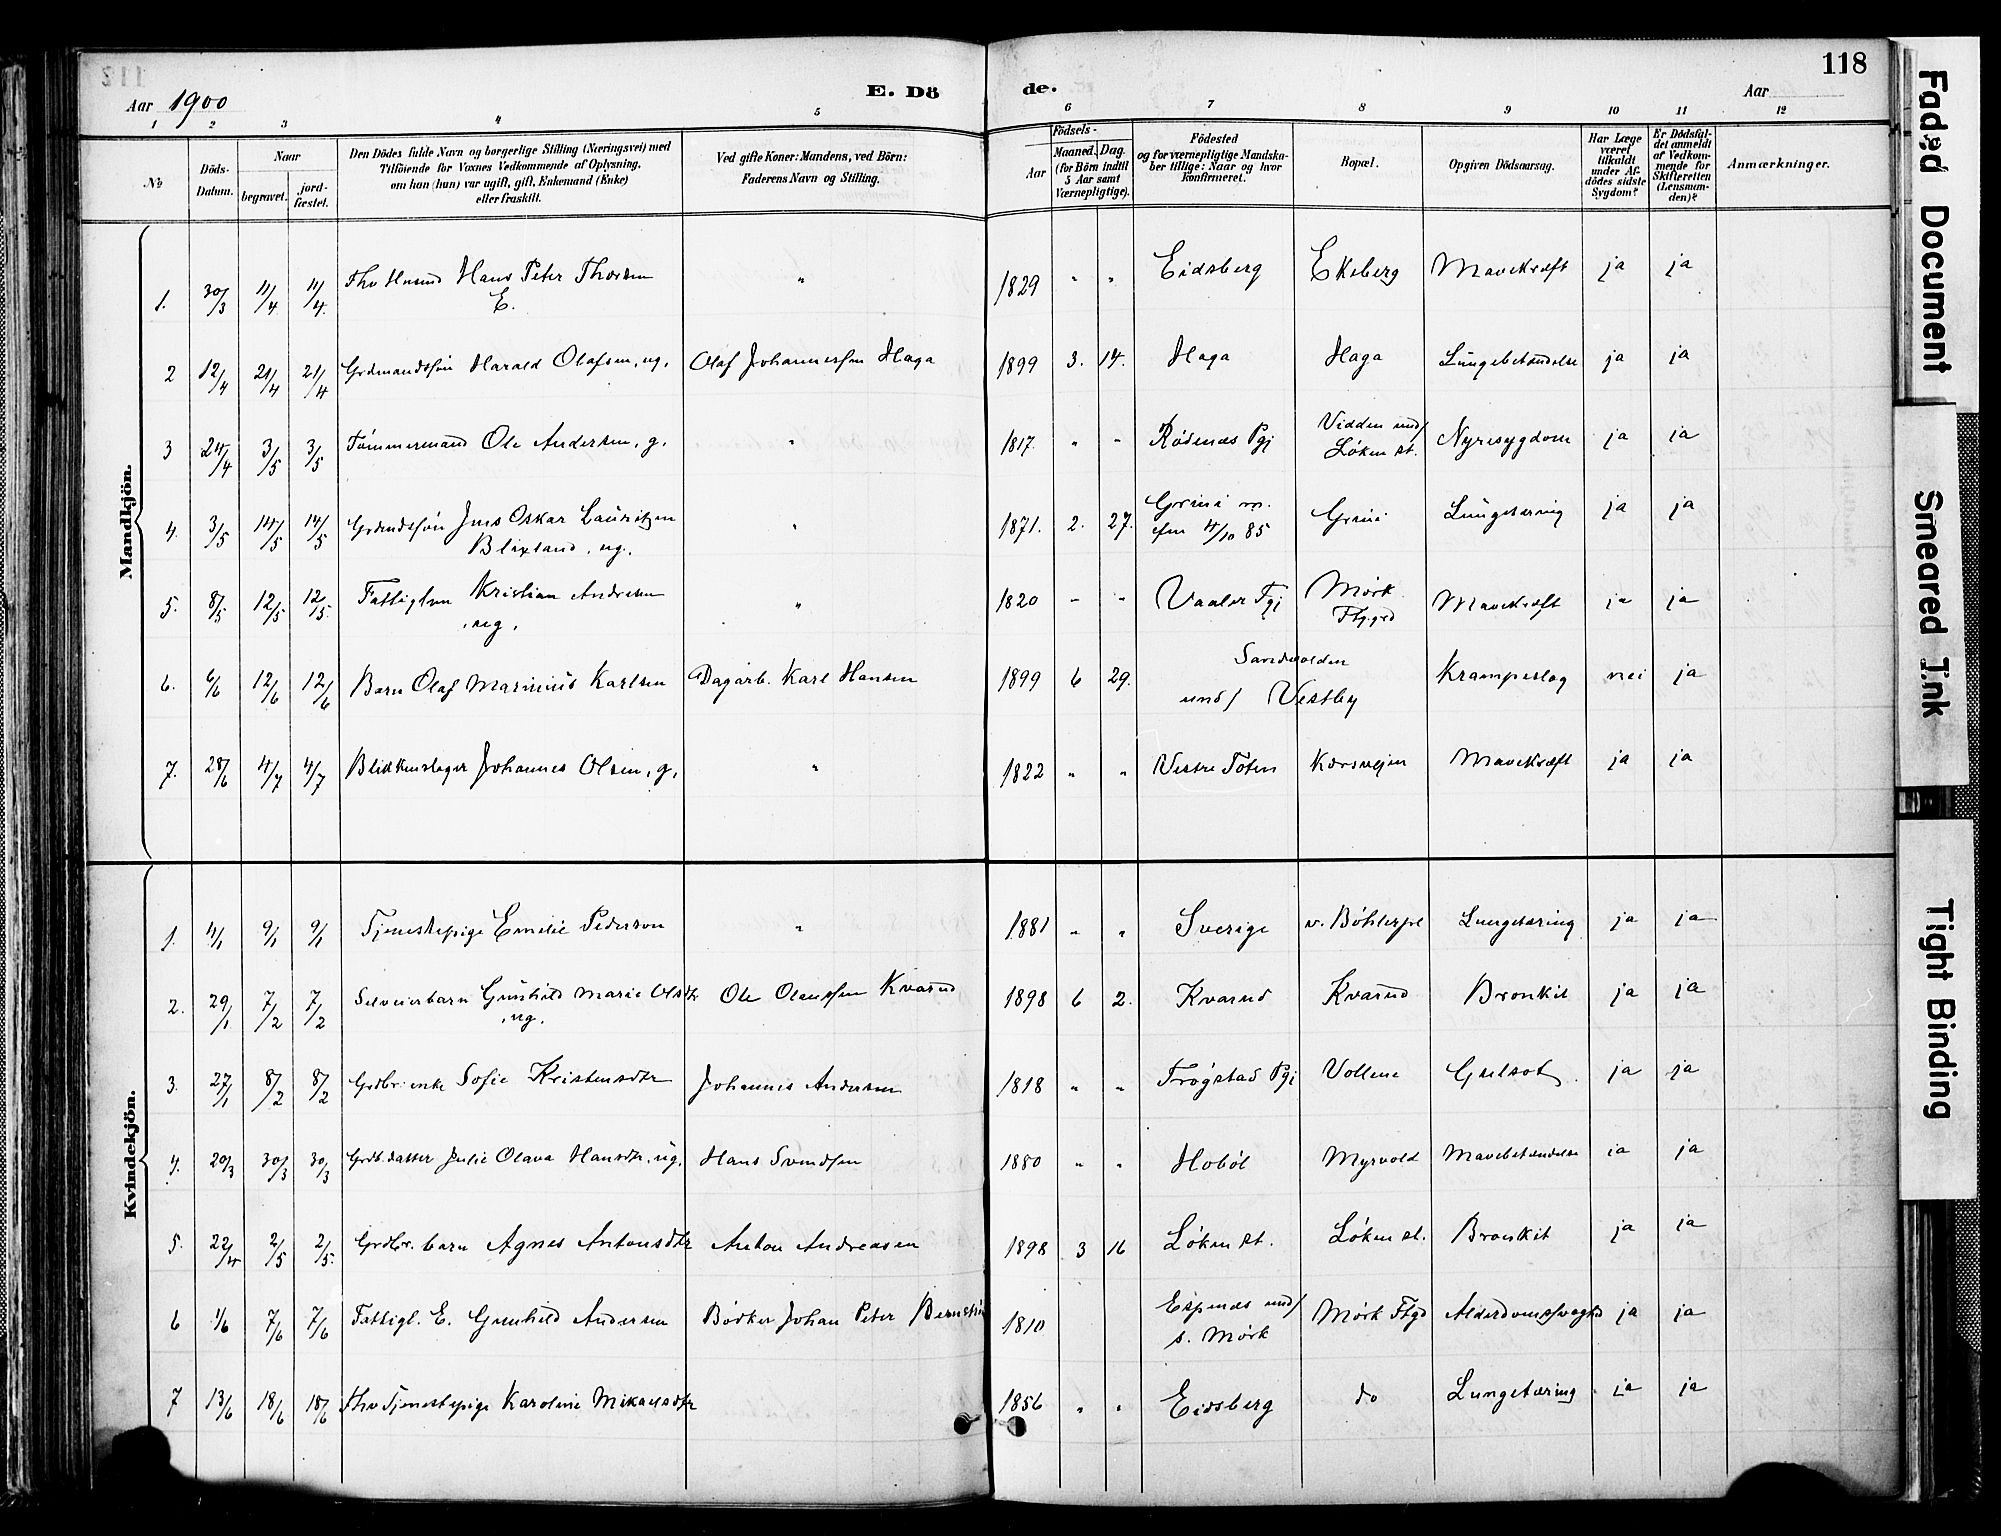 118
Aar 1900
E. Dö
de.
Aar
1 2 3 4 5 6 7 8 9 10 11 12
№
Döds-Datum.
Naar
begravet.
jord-fæstet.
Den Dödes fulde Navn og borgerlige Stilling (Næringsvei) med
Tilföiende for Voxnes Vedkommende af Oplysning,
om han (hun) var ugift, gift, Enkemand (Enke)
eller fraskilt.
Ved gifte Koner: Mandens, ved Börn:
Faderens Navn og Stilling.
Födsels-
Aar
Maaned. Dag.
(for Börn indtil
5 Aar samt
Værnepligtige).
Födested
og for værnepligtige Mandska-
ber tillige: Naar og hvor
konfirmeret.
Bopæl.
Opgiven Dödsaarsag.
Har Læge
været
tilkaldt
under Af-
dödes sidste
Sygdom?
Er Dödsfal-
det anmeldt
af Vedkom-
mende for
Skifteretten
(Lensman-
den)?
Anmærkninger.
Mandkjön.
1. 30/3 11/4 11/4 Hans Peter Thorsen " 1829 " " Eidsberg Ekeberg Mavekræft ja ja
E.
2 12/4 21/4 21/4 Grdmandssön Harald Olafsen, ug. Olaf Johannessen Haga 1899 3. 14. Haga Haga Lungebetændelse ja ja
3 24/4 3/5 3/5 Tømmermand Ole Andersen, g. " 1817. " " Rødenæs Pgj Vidden und/ Nyresygdom ja ja
Løken st.
4. 3/5 14/5 14/5 Jens Oskar Lauritzen " 1871. 2. 27. Grini Grini Lungetæring ja ja
Blixland, ug. 4/10 85
5. 8/5 12/5 12/5 Fattiglem Kristian Andresen " 1820 " " Vaaler Pgj Mørk Mavekræft ja ja
, ug. Ftg.grd
6. 6/6 12/6 12/6 Barn Olaf Marinius Karlsen Dagarb. Karl Hansen 1899 6 29. Sandvolden Krampeslag nei ja
und/ Vestby
7. 28/6 4/7 4/7 Blikkenslager Johannes Olsen, g. " 1822 " " Vestre Toten Korsvejen Mavekræft ja ja
Kvindekjön.
1. 4/1 9/1 9/1 Tjenestepige Emilie Pederson " 1881 " " Sverige Lungetæring ja ja
2. 29/1 7/2 7/2 Selveierbarn Gunhild Marie Olsdtr Ole Olaussen Kvarud 1898 6 2. Kvarud Kvarud Bronkit ja ja
, ug.
3. 27/1 8/2 8/2 Grdbr. enke Sofie Kristensdtr Johannes Andersen 1818 " " Trøgstad Pgj Vollene Gulsot. ja ja
4. 20/3 30/3 30/3 Grdb.datter Julie Olava Hansdtr, ug. Hans Svendsen 1880 " " Hobøl Myrvold Mavebetændelse ja ja
5. 22/4 2/5 2/5. Grdbr. barn Agnes Antonsdtr Anton Andreasen 1898 3 16 Løken st. Løken st. Bronkit ja ja
6 1/6 7/6 7/6 Fattigl. E. Gunhild Andersen Bødker Johan Peter 1810 Espenæs und/ Mørk Ftgd Alderdomssvaghd ja ja
s. Mørk
7 13/6 18/6 18/6 Fhv Tjenestepige Karoline Mikaelsdtr 1856 " " Eidsberg do Lungetæring ja ja
Faded Document
Smeared Ink
Tight Binding